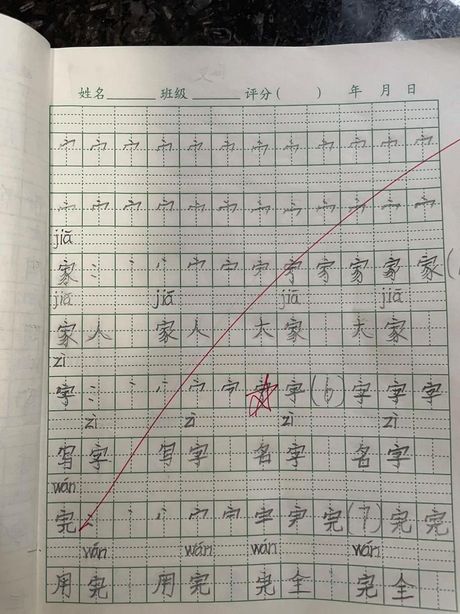 姓名 班级 评分( ) 年 月 日
宀 宀 宀 宀 宀 宀 宀 宀 宀 宀 宀 宀
宀 宀 宀 宀 宀 宀 宀 宀 宀 宀 宀 宀
jiā
家 丶 丶 宀 宀 家 家 家 家
jiā jiā jiā jiā
家 人 家 人 大 家 大 家
zì
字 丶 丶 宀 字 (6) 字 字 字
zì zì zì zì
写 字 写 字 名 字 名 字
wán
完 丶 丶 宀 完 (7) 完 完
wán wán wán wán
用 完 用 完 完 全 完 全